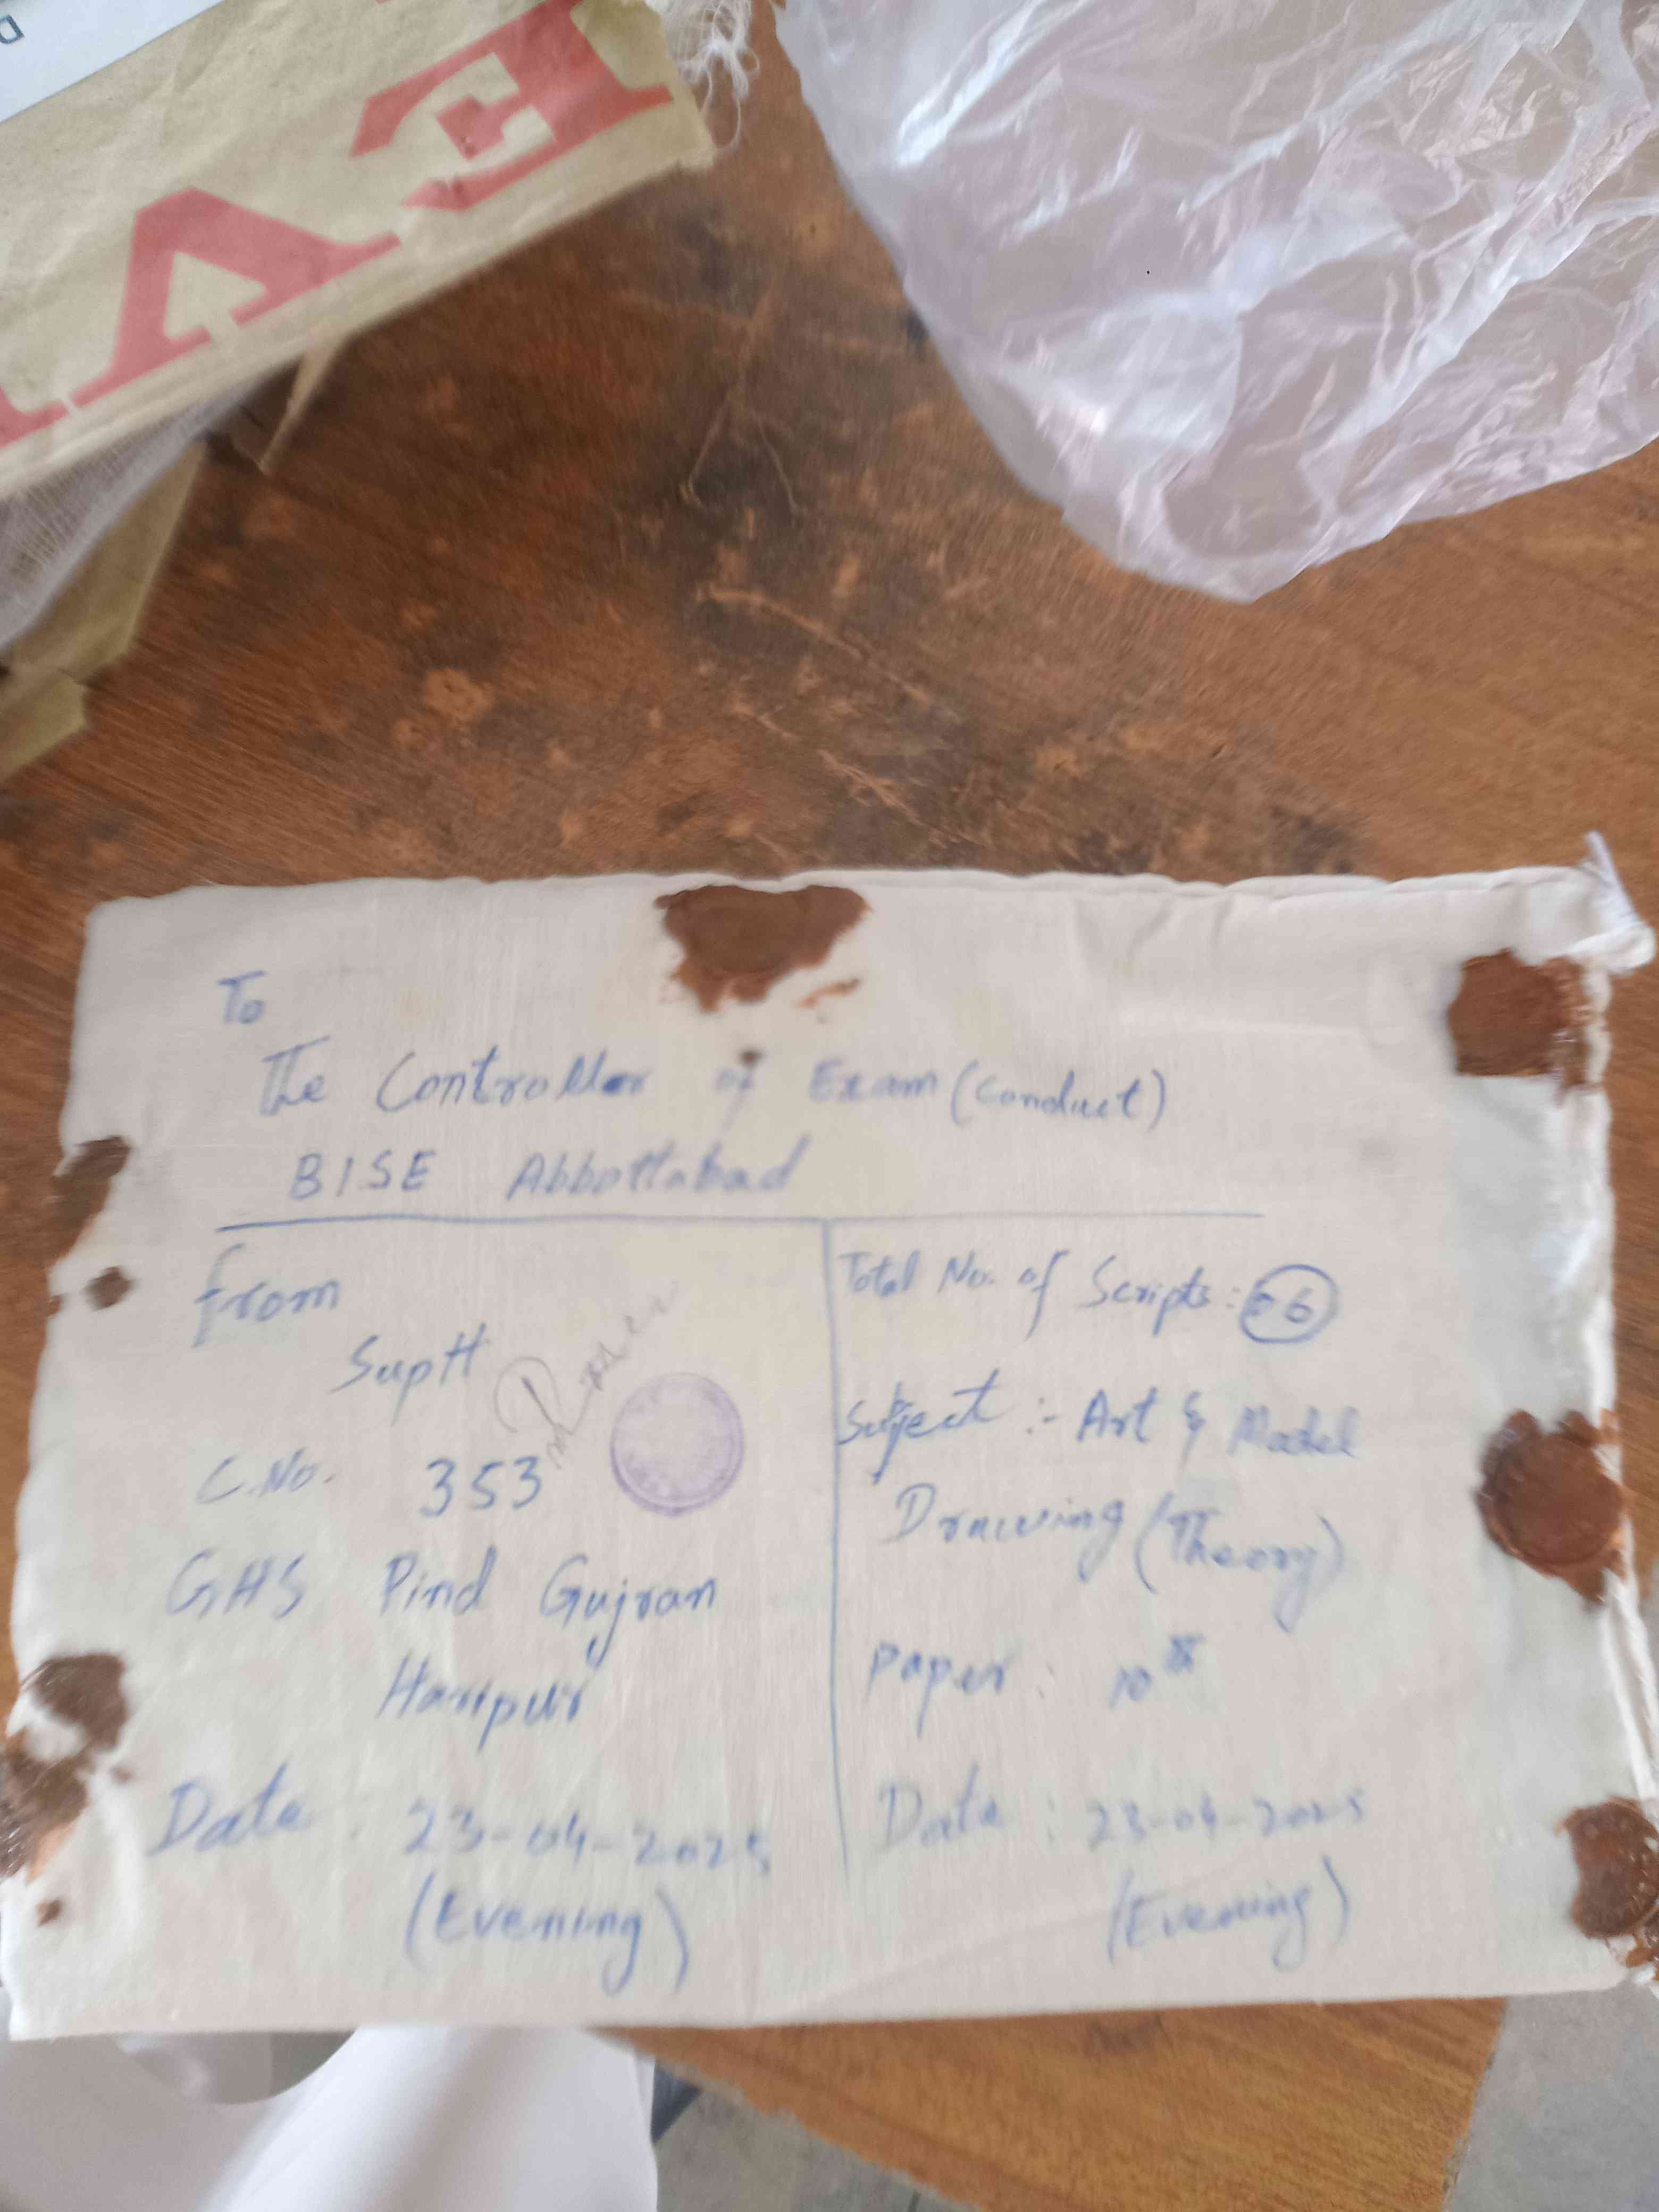 To
The Controller of Exam (Conduct)
BISE Abbottabad
From
Suptt
C.No. 353
GHS Pind Gujran
Haripur
Date: 23-04-2025
(Evening)
Total No. of Scripts: 06
Subject :- Art & Model
Drawing (Theory)
Paper: 10th
Date: 23-04-2025
(Evening)